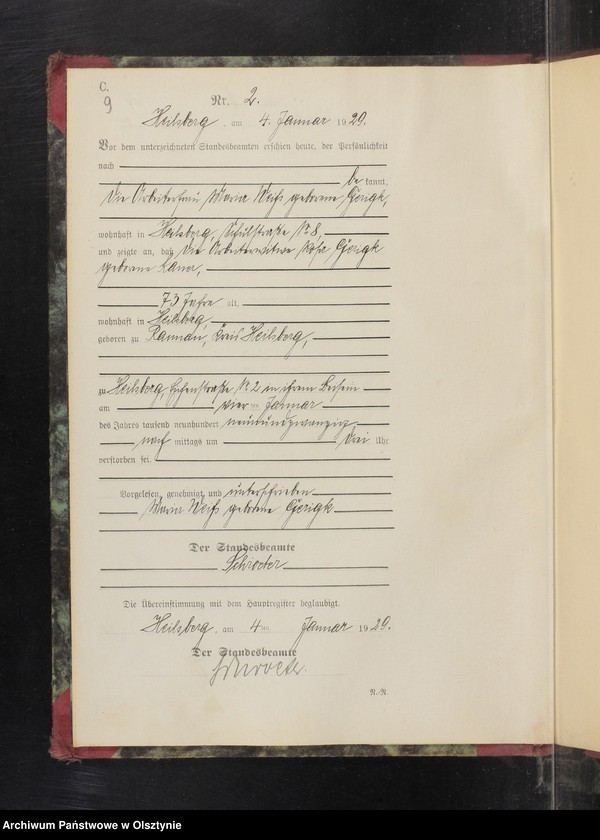 C.
9
Nr. 2.
Heilsberg, am 4. Januar 1929.
Vor dem unterzeichneten Standesbeamten erschien heute, der Persönlichkeit
nach
be kannt,
die Arbeiterfrau Maria Weiß geborene Gerigk,
wohnhaft in Heilsberg, Schulstraße № 8,
und zeigte an, daß die Arbeiterwitwe Rosa Gerigk
geborene
73 Jahre alt,
wohnhaft in Heilsberg,
geboren zu Kreis Heilsberg,
zu Heilsberg, № 2 in ihrem Beisein
am vier ten Januar
des Jahres tausend neunhundert neunundzwanzig
nach mittags um drei Uhr
verstorben sei.
Vorgelesen, genehmigt und unterschrieben
Maria Weiß geborene Gerigk
Der Standesbeamte
Schroeter
Die Übereinstimmung mit dem Hauptregister beglaubigt.
Heilsberg, am 4 ten Januar 1929.
Der Standesbeamte
Schroeter.
N.-R.
Archiwum Państwowe w Olsztynie